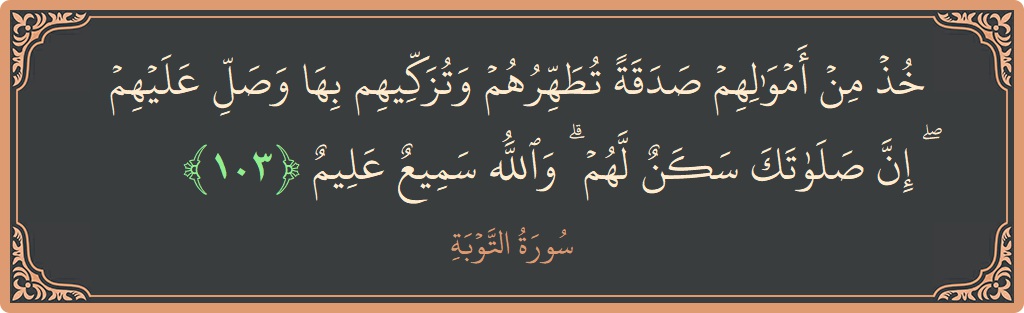 خُذۡ مِنۡ أَمۡوَٰلِهِمۡ صَدَقَةٗ تُطَهِّرُهُمۡ وَتُزَكِّيهِم بِهَا وَصَلِّ عَلَيۡهِمۡ
ۖ إِنَّ صَلَوٰتَكَ سَكَنٞ لَّهُمۡۗ وَٱللَّهُ سَمِيعٌ عَلِيمٌ ﴿١٠٣﴾
سُورَةُ التَّوۡبَةِ